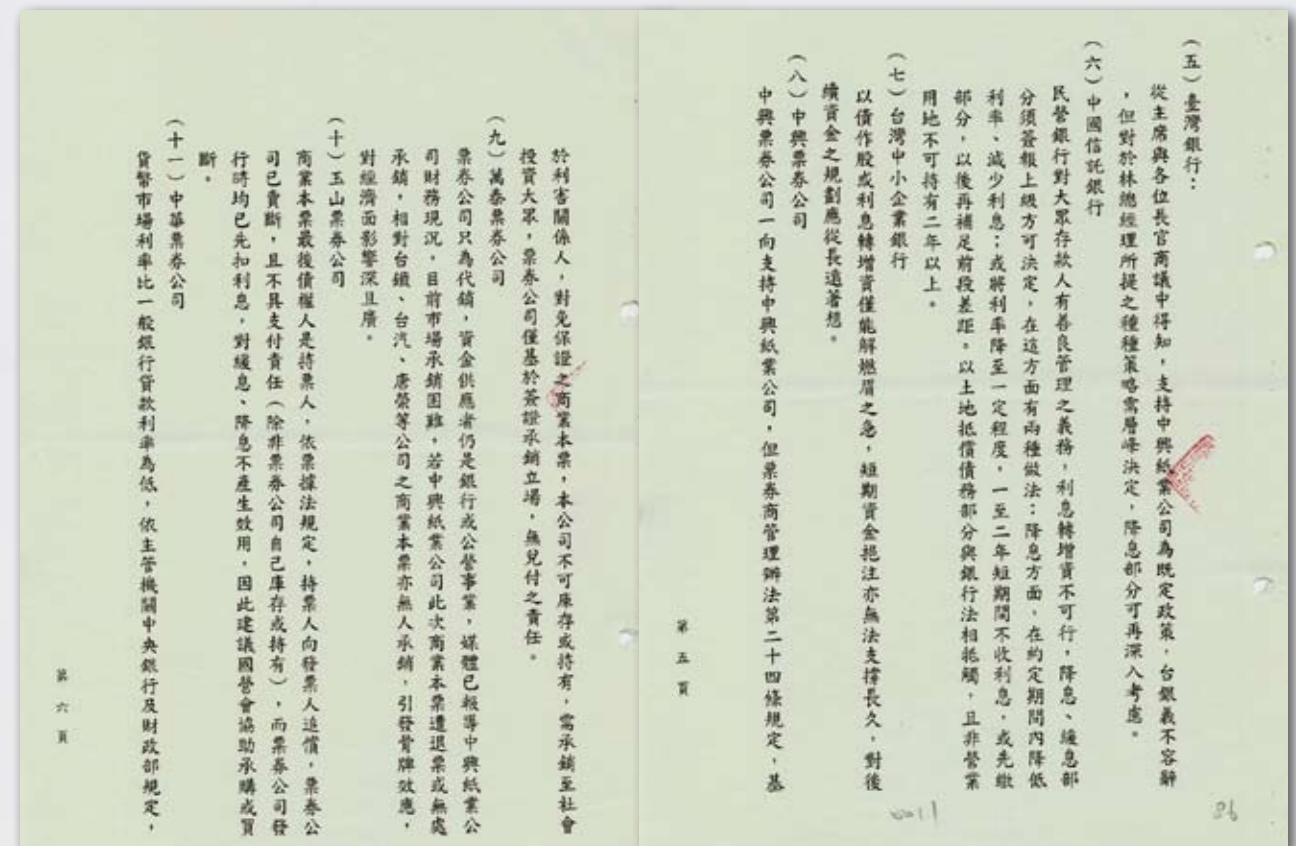 (五)臺灣銀行：
從主席與各位長官商議中得知，支持中興紙業公司為既定政策，台銀義不容辭
，但對於林總經理所提之種種策略需層峰決定，降息部分可再深入考慮。
(六)中國信託銀行
民營銀行對大眾存款人有善良管理之義務，利息轉增資不可行，降息、緩息部
分須簽報上級方可決定，在這方面有兩種做法：降息方面，在約定期間內降低
利率、減少利息；或將利率降至一定程度，一至二年短期間不收利息，或先繳
部分，以後再補足前段差距。以土地抵償債務部分與銀行法相抵觸，且非營業
用地不可持有二年以上。
(七)台灣中小企業銀行
以債作股或利息轉增資僅能解燃眉之急，短期資金挹注亦無法支撐長久，對後
續資金之規劃應從長遠著想。
(八)中興票券公司
中興票券公司一向支持中興紙業公司，但票券商管理辦法第二十四條規定，基
第五頁
86
0011
於利害關係人，對免保證之商業本票，本公司不可庫存或持有，需承銷至社會
投資大眾，票券公司僅基於簽證承銷立場，無兌付之責任。
(九)萬泰票券公司
票券公司只為代銷，資金供應者仍是銀行或公營事業，媒體已報導中興紙業公
司財務現況，目前市場承銷困難，若中興紙業公司此次商業本票遭退票或無處
承銷，相對台鐵、台汽、唐榮等公司之商業本票亦無人承銷，引發骨牌效應，
對經濟面影響深且廣。
(十)玉山票券公司
商業本票最後債權人是持票人，依票據法規定，持票人向發票人追償，票券公
司已賣斷，且不具支付責任（除非票券公司自己庫存或持有），而票券公司發
行時均已先扣利息，對緩息、降息不產生效用，因此建議國營會協助承購或買
斷。
(十一)中華票券公司
貨幣市場利率比一般銀行貸款利率為低，依主管機關中央銀行及財政部規定，
第六頁